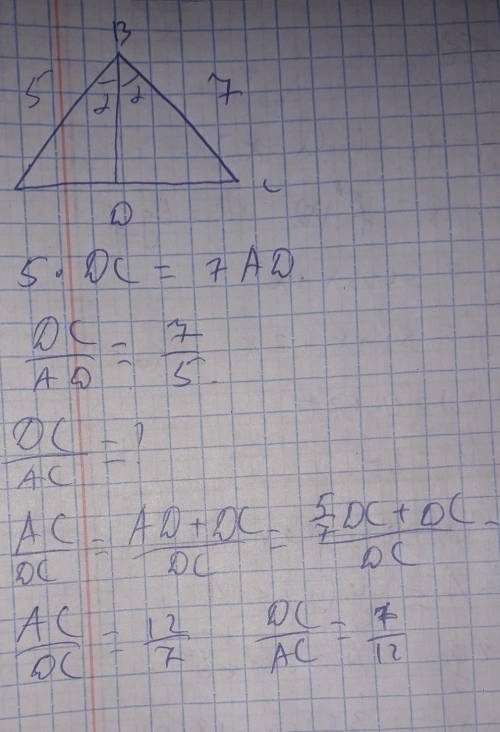 B
5 2 2 7
D C
5 · DC = 7AD.
DC/AD = 7/5.
DC/AC = ?
AC/DC = AD + DC/DC = 5/7 DC + DC/DC =
AC/DC = 12/7 DC/AC = 7/12